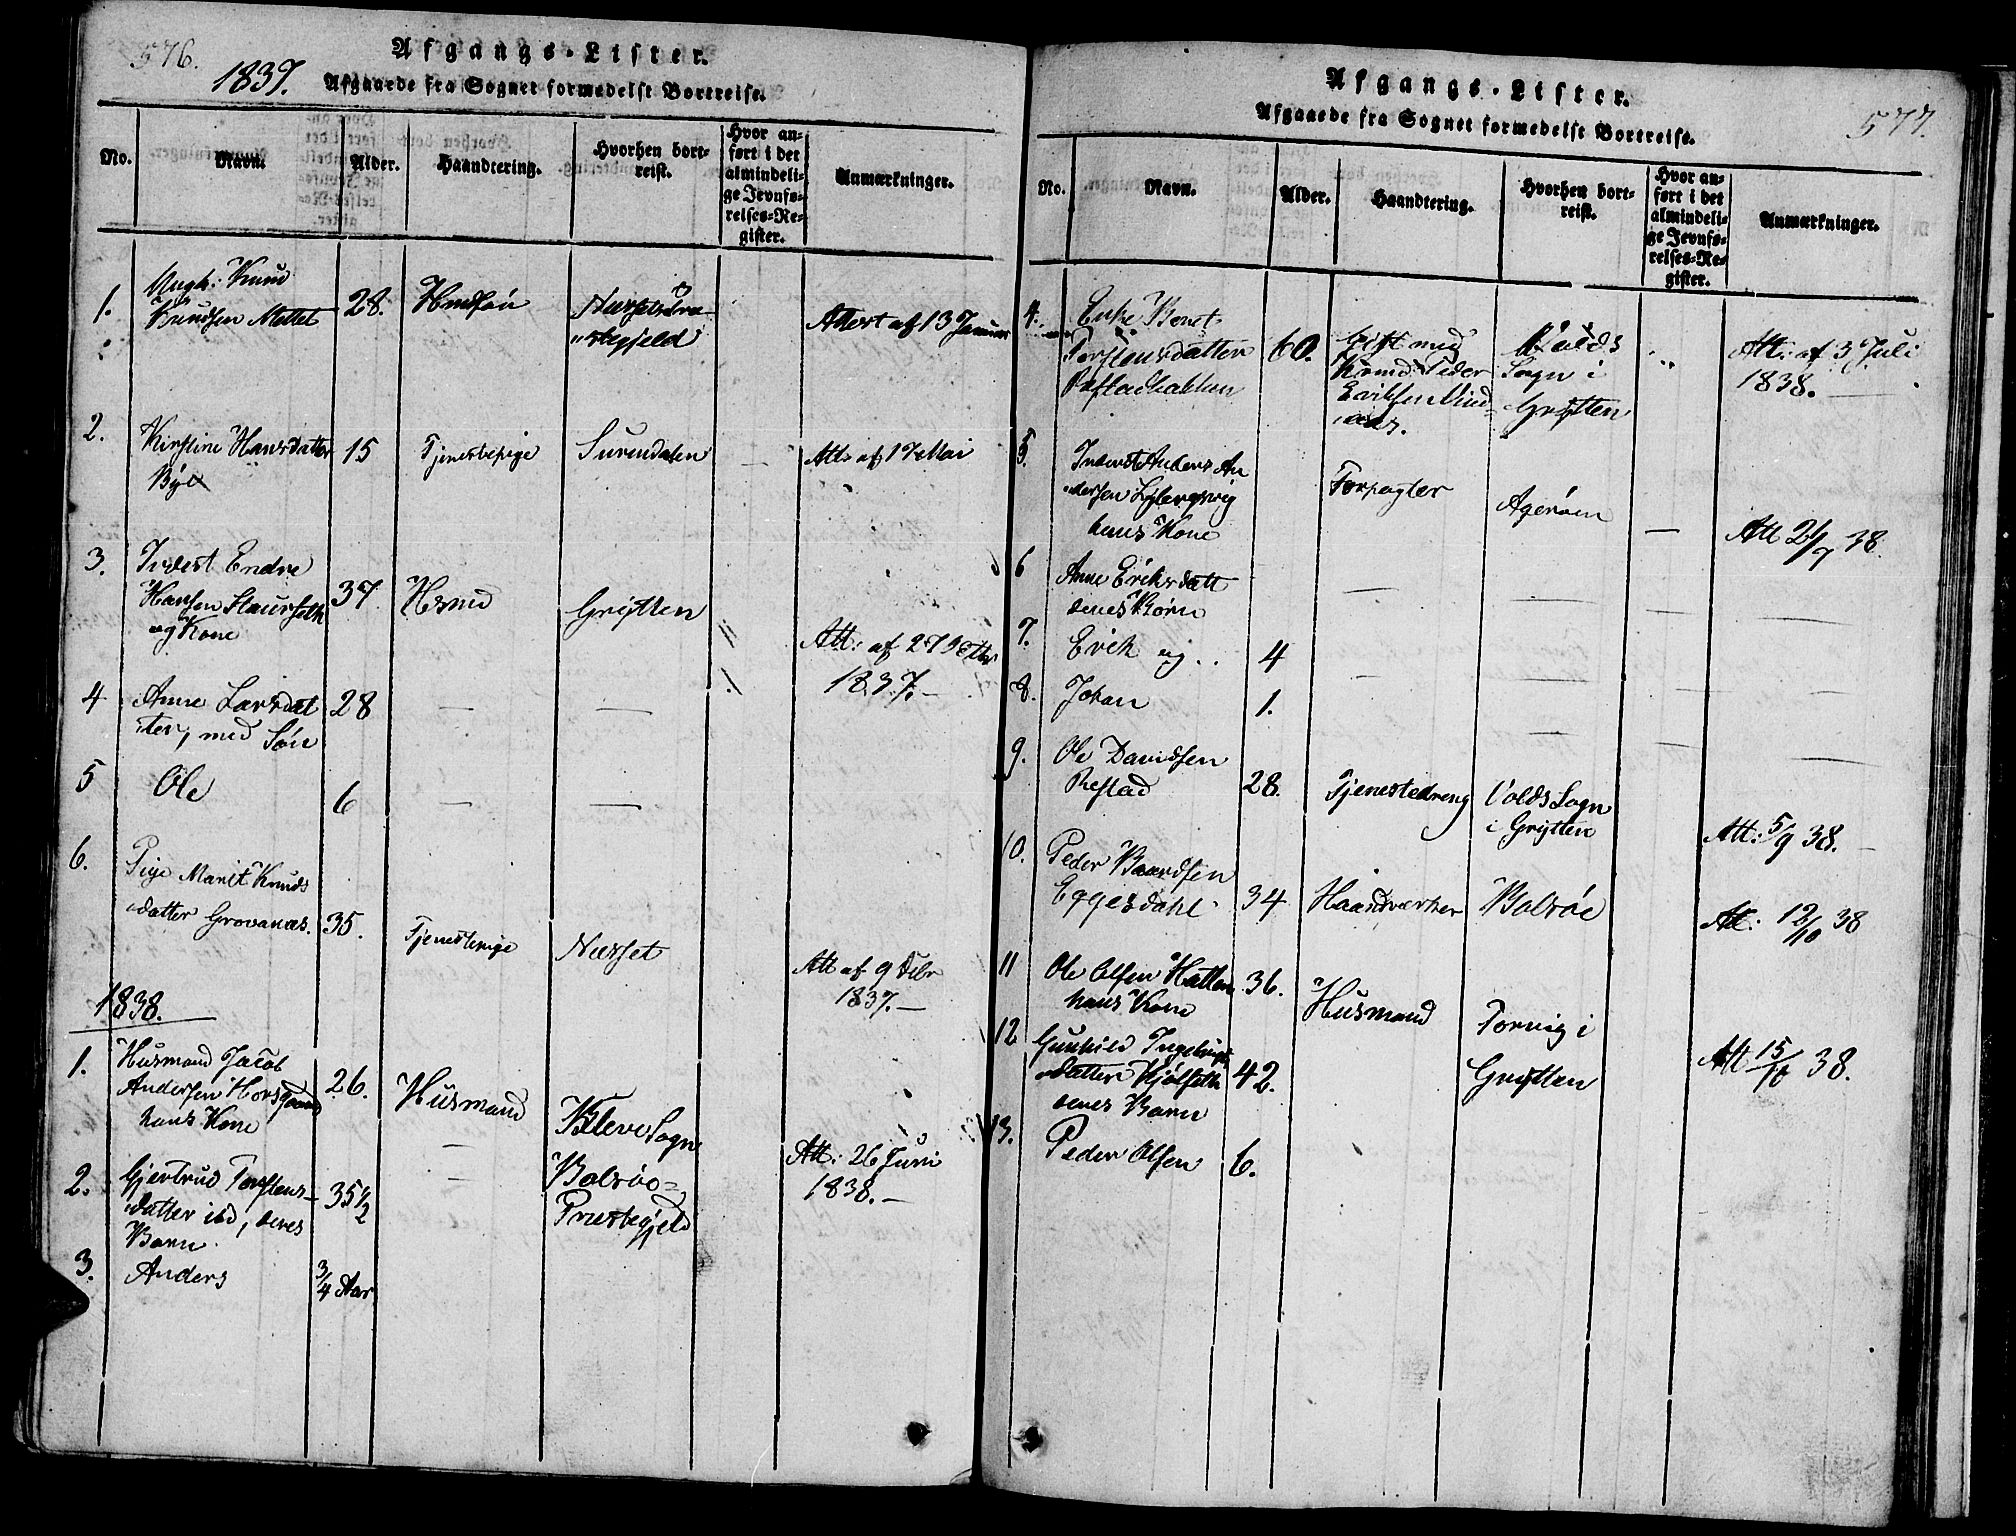 576.
Afgangs-Lister.
1837.
Afgaaede fra Sognet formedelst Bortreise.
No.
Navn.
Alder.
Haandtering.
Hvorhen bortreist.
Hvor anført i det almindelige Jevnførelses-Register.
Anmærkninger.
1.
Ungk: Knud
Knudsen Mettet
28.
Attest af 13 Januar
2.
Kirstine Hansdatter
15
Tjenestepige
Surendalen
Att: af 17 Mai
3.
Inderst Endre
Hansen Staurseth
og Kone
37
Hsmd
Grytten
Att: af 27 Octbr
1837.-
4
Anne Larsdat
ter, med Søn
28
5
Ole
6
6.
Pige Marit Knuds
datter Grovanæs.
35.
Tjenestepige
Næsset
Att af 9
1837.-
1838.
1.
Husmand Jacob
Andersen Horsgaard
hans Kone
26.
Husmand
Kleve Sogn
Bolsøe-
Præstegjeld
Att: 26 Juni
1838.-
2.
Gjertrud Torstens-
datter ibd, deres
Barn
35 1/2
3.
Anders
3/4 Aar
Afgangs-Lister.
577.
Afgaaede fra Sognet formedelst Bortreise.
No.
Navn.
Alder.
Haandtering.
Hvorhen bortreist.
Hvor anført i det almindelige Jevnførelses-Register.
Anmærkninger.
4.
Enke Beret
Torstensdatter
60.
Gift med
Husmd Peder
Eriksen
Volds
Sogn i
Grytten
Att: af 3 Juli
1838.
5.
Inderst Anders An
dersen
hans Kone
Forpagter
Agerøen
Att 21/7 38.
6
Anne Eriksdatt
deres Børn
7.
Erik og
4
8.
Johan
1.
9.
Ole Davidsen
Refstad
28.
Tjenestedreng
Volds Sogn
i Grytten
Att: 5/9 38.
10.
Peder Baardsen
Eggesdahl
34
Haandværker
Bolsøe
Att: 12/10 38
11
Ole Olsen Hatten
hans Kone
36.
Husmand
Torvig i
Grytten
Att 15/10 38.
12
Gunhild Ingebrigts
datter Hjølseth
deres Barn
42.
13.
Peder Olsen
6.